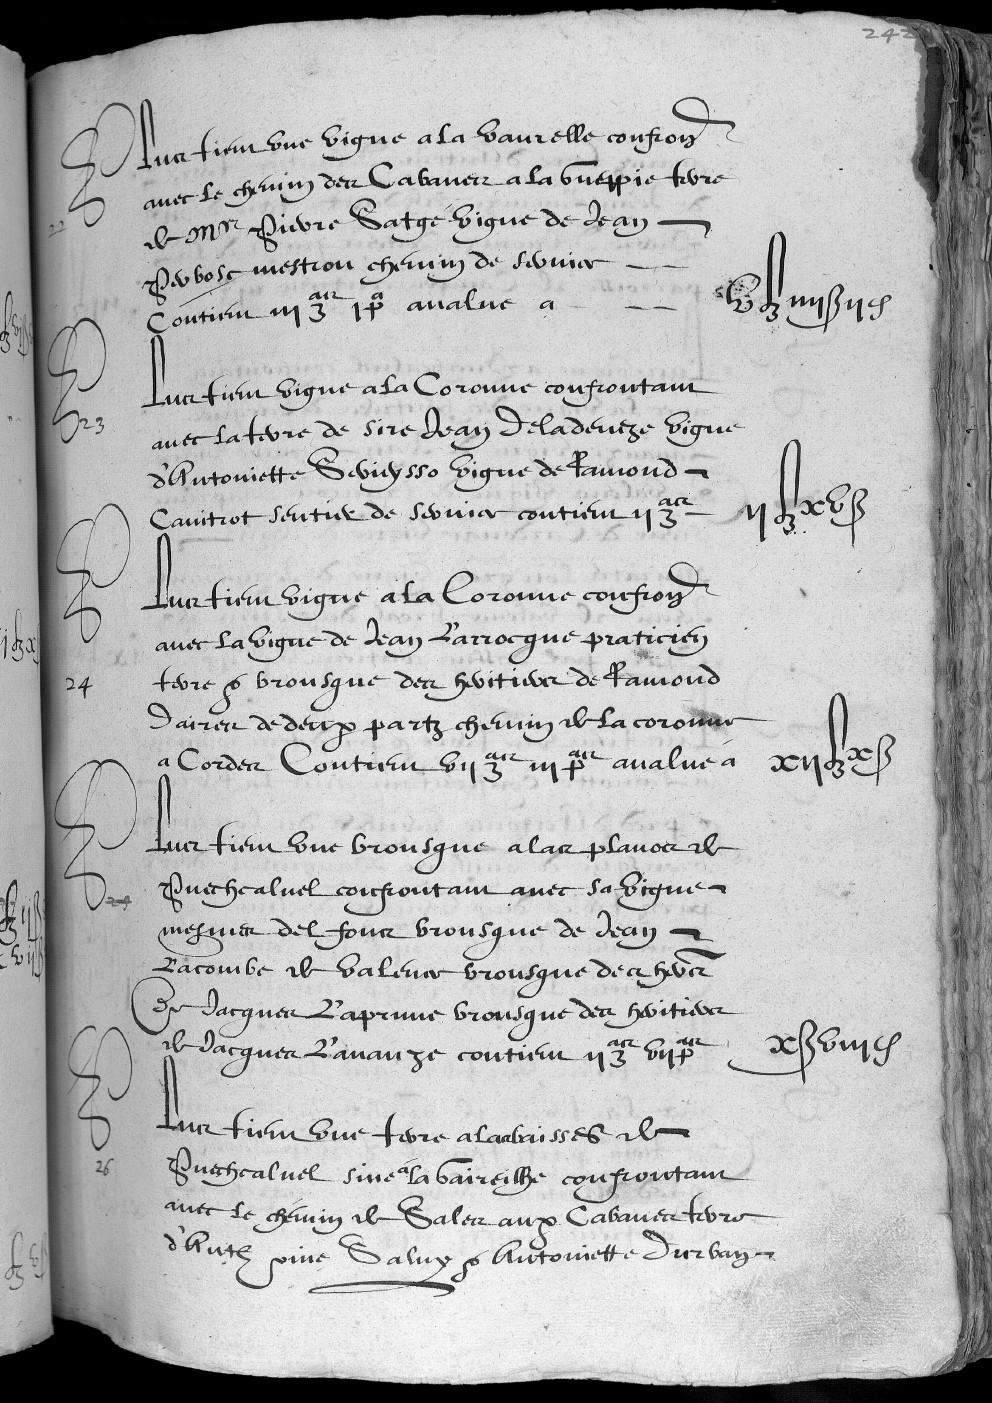 242
Plus tient une vigne a la vaurelle confron
avec le chemin des Cabanes a la terre
de Mr Pierre Satgé vigne de Jean
mestron chemin de
Contient iii ar i p avalue a
22
Plus tient vigne a la Coronne confrontant
avec la terre de sire Jean Deladeneze vigne
d'Antoniette vigne de Ramond
Cantrot sentier de contient ii ar
ii xv ß
23
Plus tient vigne a la Coronne confron
avec la vigne de Jean Larrocque praticien
terre & brousque des heritiers de Ramond
Daires de deux partz chemin de la coronne
a Cordes Contient vii ar iii p avalue a
xii x ß
24
Plus tient une brousque a las planos de
Puechcalvel confrontant avec sa vigne
mesmes del four brousque de Jean
Lacombe de brousque des hers
de Jacques Laprune brousque des heritiers
de Jacques contient ii ar vii p
x ß viii d
24
Plus tient une terre a las baisses de
Puechcalvel sive a la confrontant
avec le chemin de Sales aux Cabanes terre
d'Anth Salvy & Antoniette Durban
26